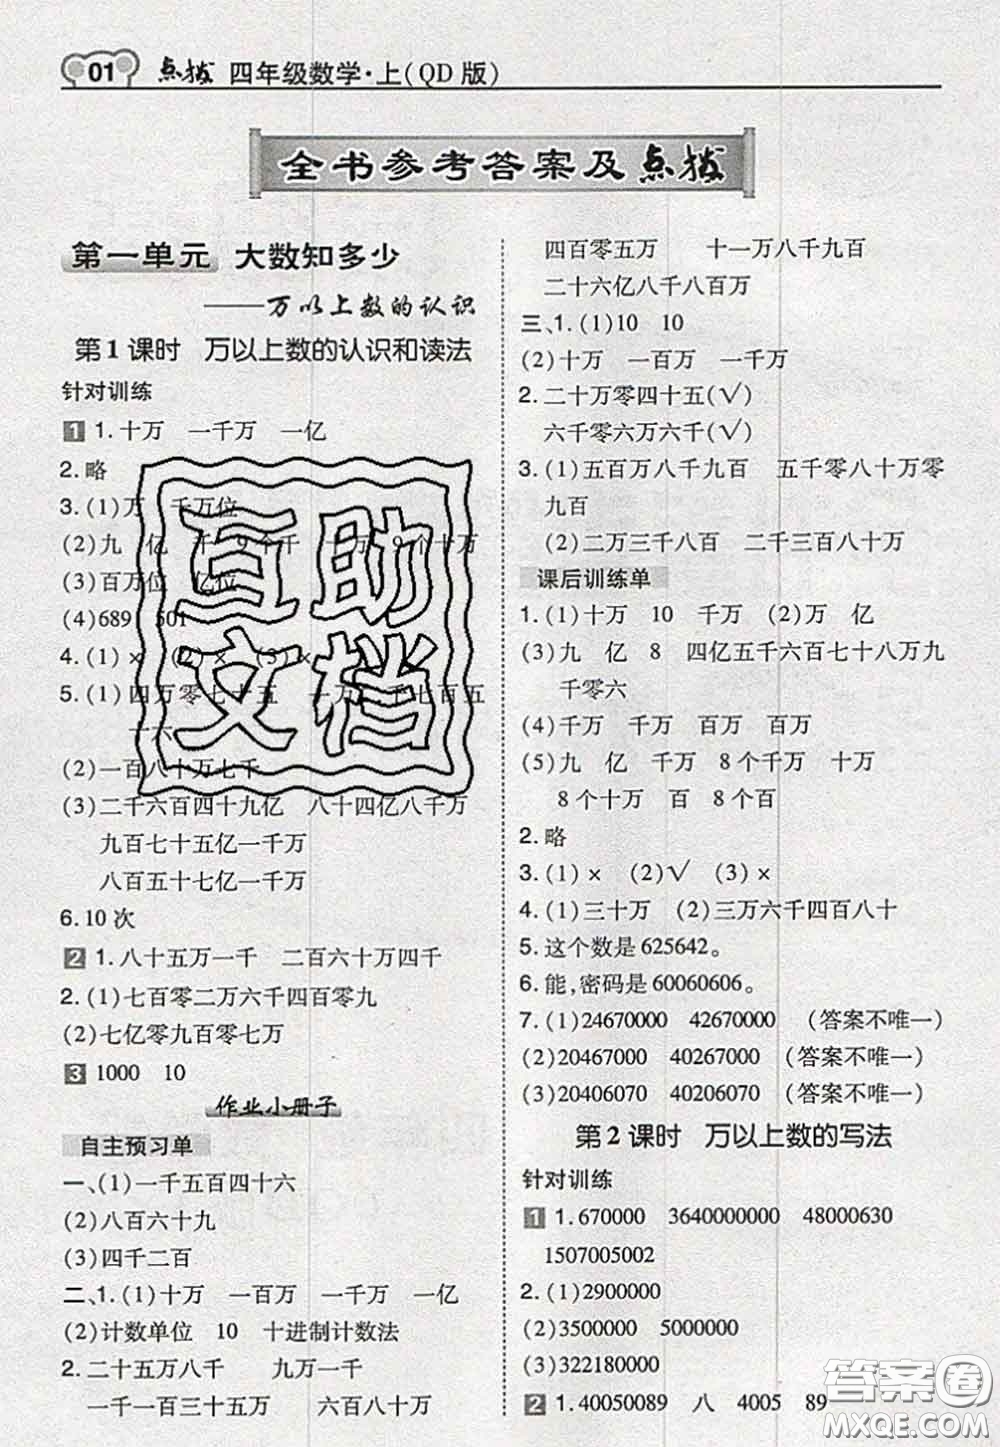 01 点拨 四年级数学·上(QD版)
全书参考答案及点拨
第一单元 大数知多少
——万以上数的认识
第1课时 万以上数的认识和读法
针对训练
1 1.十万 一千万 一亿
2.略
3.(1)万 千万位
(2)九 亿 千 9个千 十万 9个十万
(3)百万位 亿位
(4)689 501
4.(1)× (2)× (3)×
5.(1)四万零七十五 十万 千七百五
十六
(2)一百八十万七千
(3)二千六百四十九亿 八十四亿八千万
九百七十五亿一千万
八百五十七亿一千万
6.10次
2 1.八十五万一千 二百六十万四千
2.(1)七百零二万六千四百零九
(2)七亿零九百零七万
3 1000 10
作业小册子
自主预习单
一、(1)一千五百四十六
(2)八百六十九
(3)四千二百
二、1.(1)十万 一百万 一千万 一亿
(2)计数单位 10 十进制计数法
2.二十五万八千 九万一千
一千一百三十五万 六百八十万
四百零五万 十一万八千九百
二十六亿八千八百万
三、1.(1)10 10
(2)十万 一百万 一千万
2.二十万零四十五(√)
六千零六万六千(√)
3.(1)五百万八千九百 五千零八十万零
九百
(2)二万三千八百 二千三百八十万
课后训练单
1.(1)十万 10 千万 (2)万 亿
(3)九 亿 8 四亿五千六百七十八万九
千零六
(4)千万 千万 百万 百万
(5)九 亿 千万 8个千万 百万
8个十万 百 8个百
2.略
3.(1)× (2)√ (3)×
4.(1)三十万 (2)三万六千四百八十
5.这个数是625642。
6.能,密码是60060606。
7.(1)24670000 42670000 (答案不唯一)
(2)20467000 40267000 (答案不唯一)
(3)20406070 40206070 (答案不唯一)
第2课时 万以上数的写法
针对训练
1 1.670000 3640000000 48000630
1507005002
2.(1)2900000
(2)3500000 5000000
(3)322180000
2 1.40050089 八 4005 89
互助
文档
答案圈
MXQE.COM